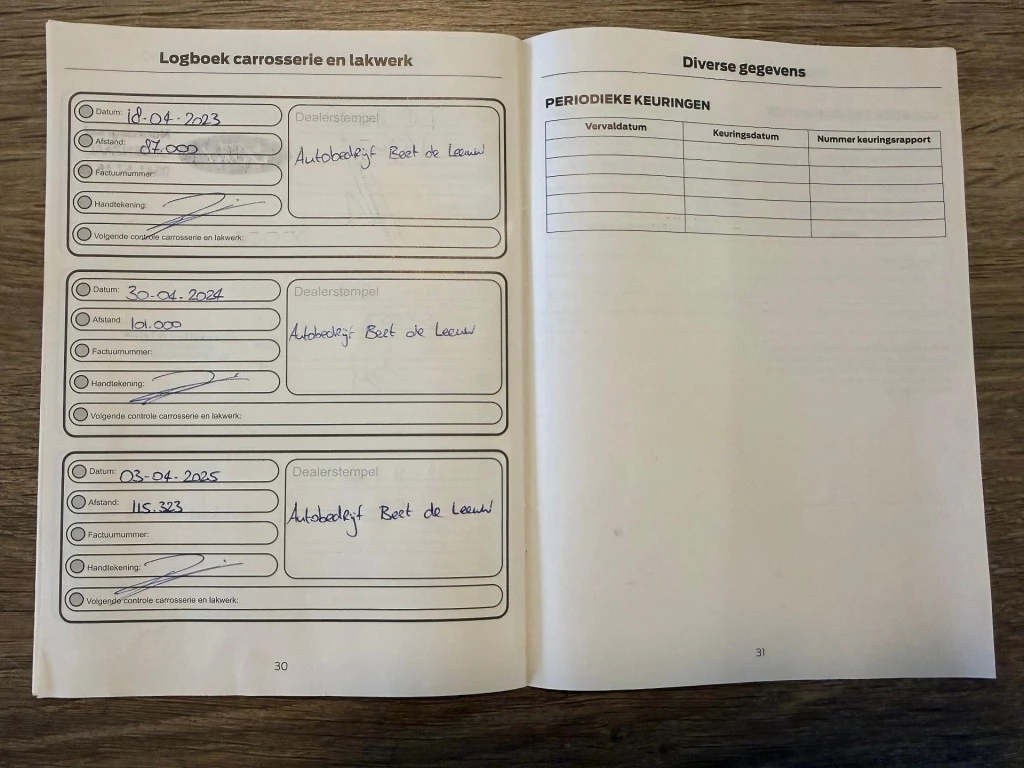 Logboek carrosserie en lakwerk
Datum: 18-04-2023
Afstand: 87.000
Factuurnummer:
Handtekening:
Volgende controle carrosserie en lakwerk:
Dealerstempel
Autobedrijf Beet de Leeuw
Datum: 30-04-2024
Afstand: 101.000
Factuurnummer:
Handtekening:
Volgende controle carrosserie en lakwerk:
Dealerstempel
Autobedrijf Beet de Leeuw
Datum: 03-04-2025
Afstand: 115.323
Factuurnummer:
Handtekening:
Volgende controle carrosserie en lakwerk:
Dealerstempel
Autobedrijf Beet de Leeuw
30
Diverse gegevens
PERIODIEKE KEURINGEN
Vervaldatum Keuringsdatum Nummer keuringsrapport
31